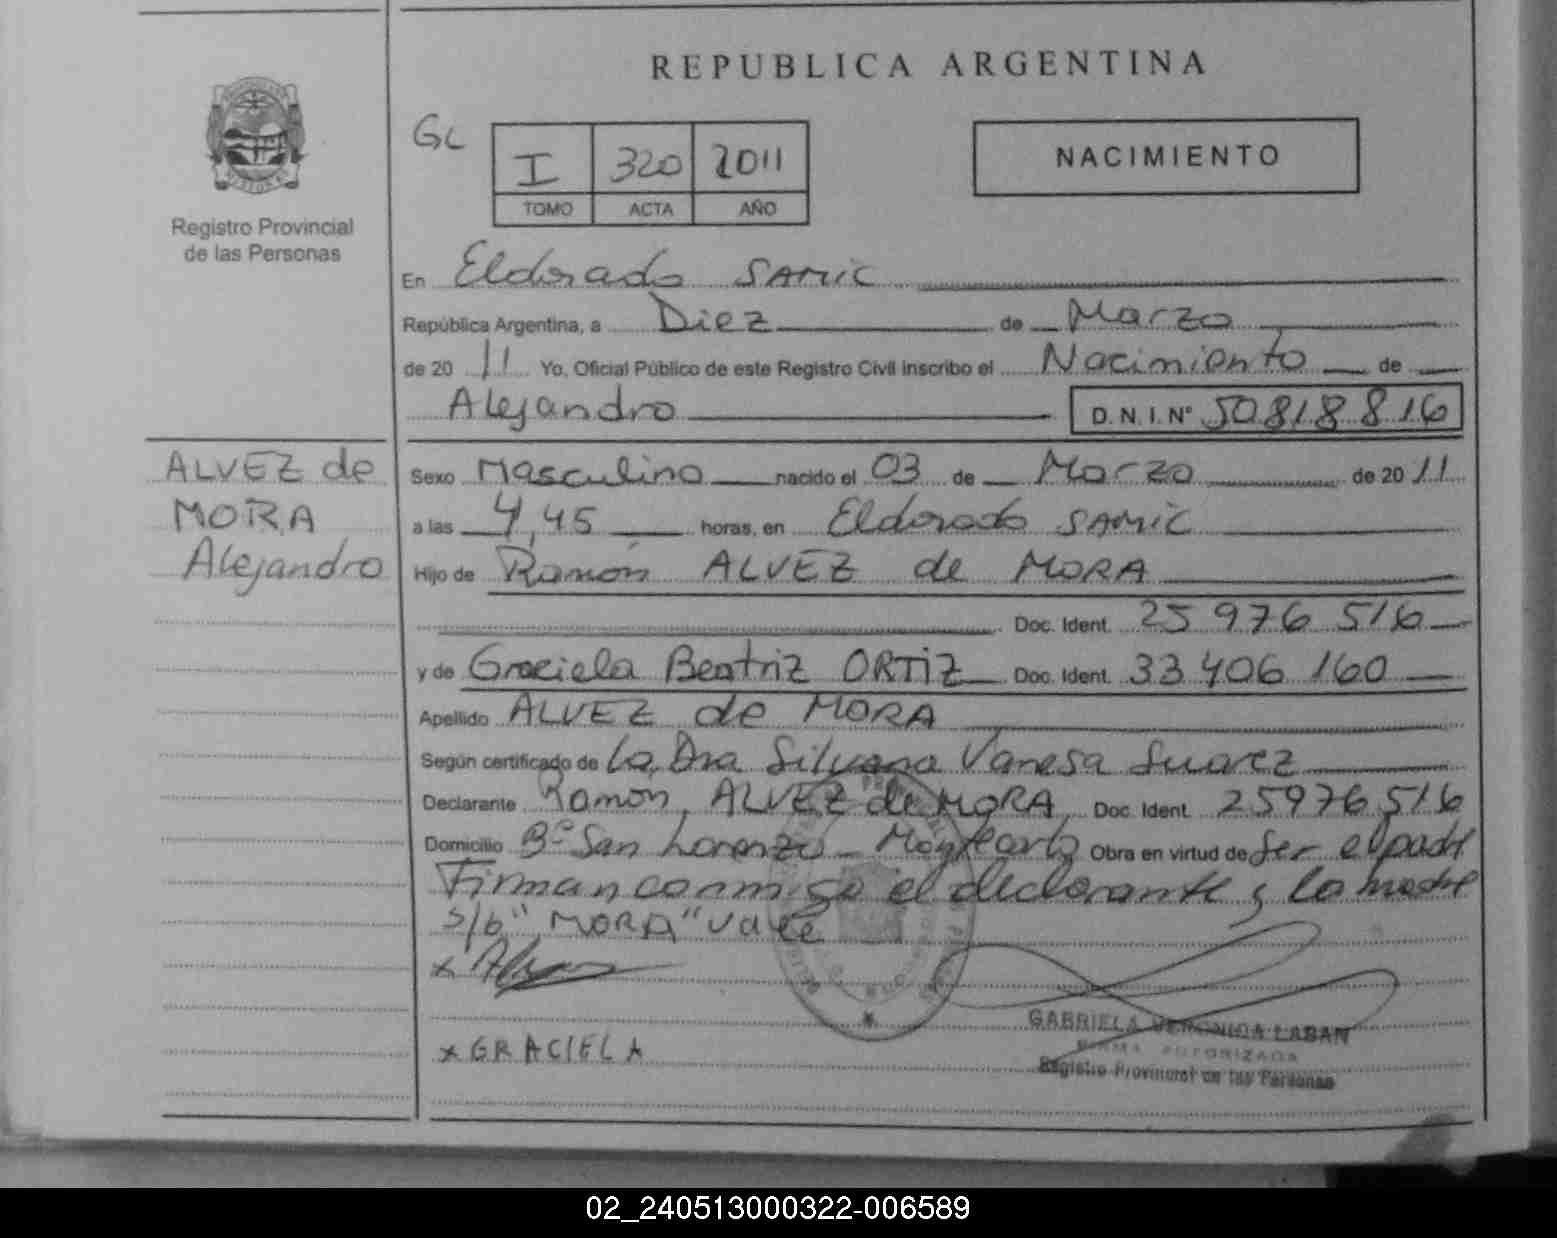 REPUBLICA ARGENTINA
GL
I 320 2011
TOMO ACTA AÑO
NACIMIENTO
Registro Provincial
de las Personas
En Eldorado SAMIC
República Argentina, a Diez de Marzo
de 2011 Yo, Oficial Público de este Registro Civil inscribo el Nacimiento de
Alejandro D.N.I.Nº 50818816
ALVEZ de
MORA
Alejandro
Sexo Masculino nacido el 03 de Marzo de 2011
a las 4,45 horas, en Eldorado SAMIC
Hijo de Ramón ALVEZ de MORA
Doc. Ident. 25 976 516
y de Graciela Beatriz ORTIZ Doc. Ident. 33 406 160
Apellido ALVEZ de MORA
Según certificado de La Dra Silvana Vanesa Suarez
Declarante Ramón ALVEZ de MORA Doc. Ident. 25976516
Domicilio Bº San Lorenzo - Montecarlo Obra en virtud de ser el padre
Firman conmigo el declarante y la madre
S/b "MORA" Vale
x
x GRACIELA
GABRIELA VERONICA LABAN
FIRMA AUTORIZADA
Registro Provincial de las Personas
02_240513000322-006589